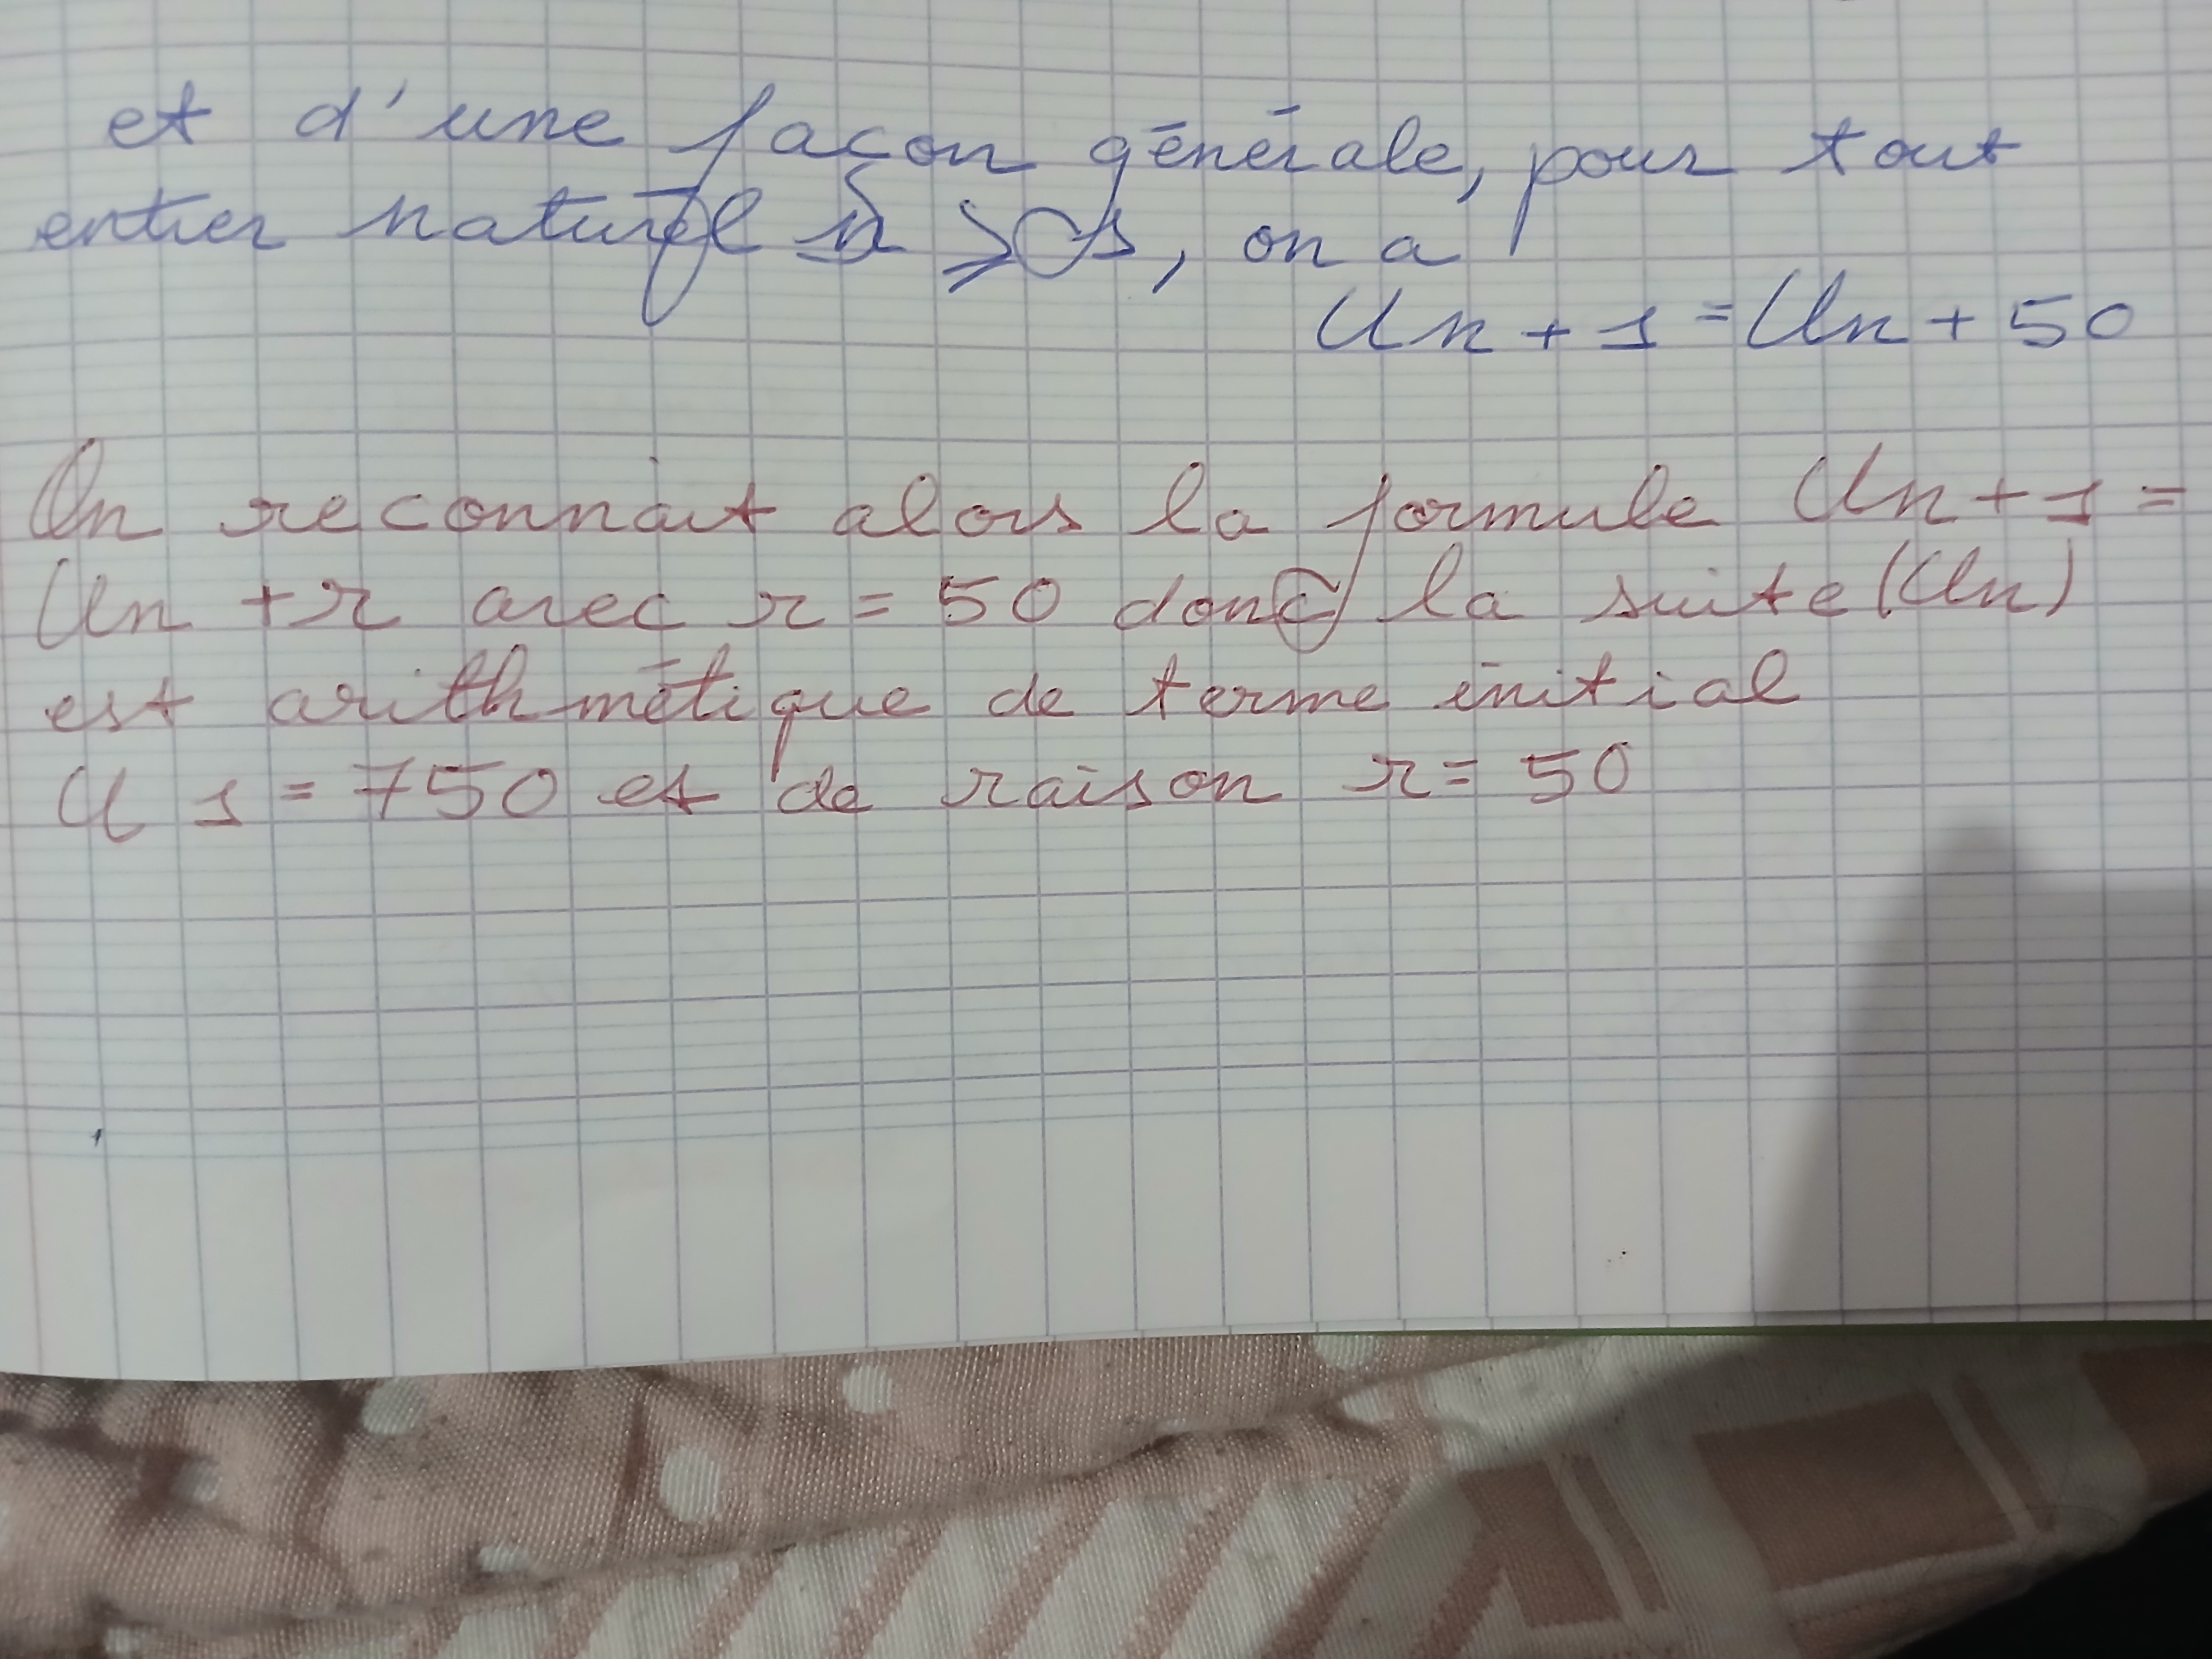 et d'une façon générale, pour tout
entier naturel n ⩾ 1, on a
Un + 1 = Un + 50
On reconnait alors la formule Un + 1 =
Un + r avec r = 50 donc la suite (Un)
est arithmétique de terme initial
U 1 = 750 et de raison r = 50